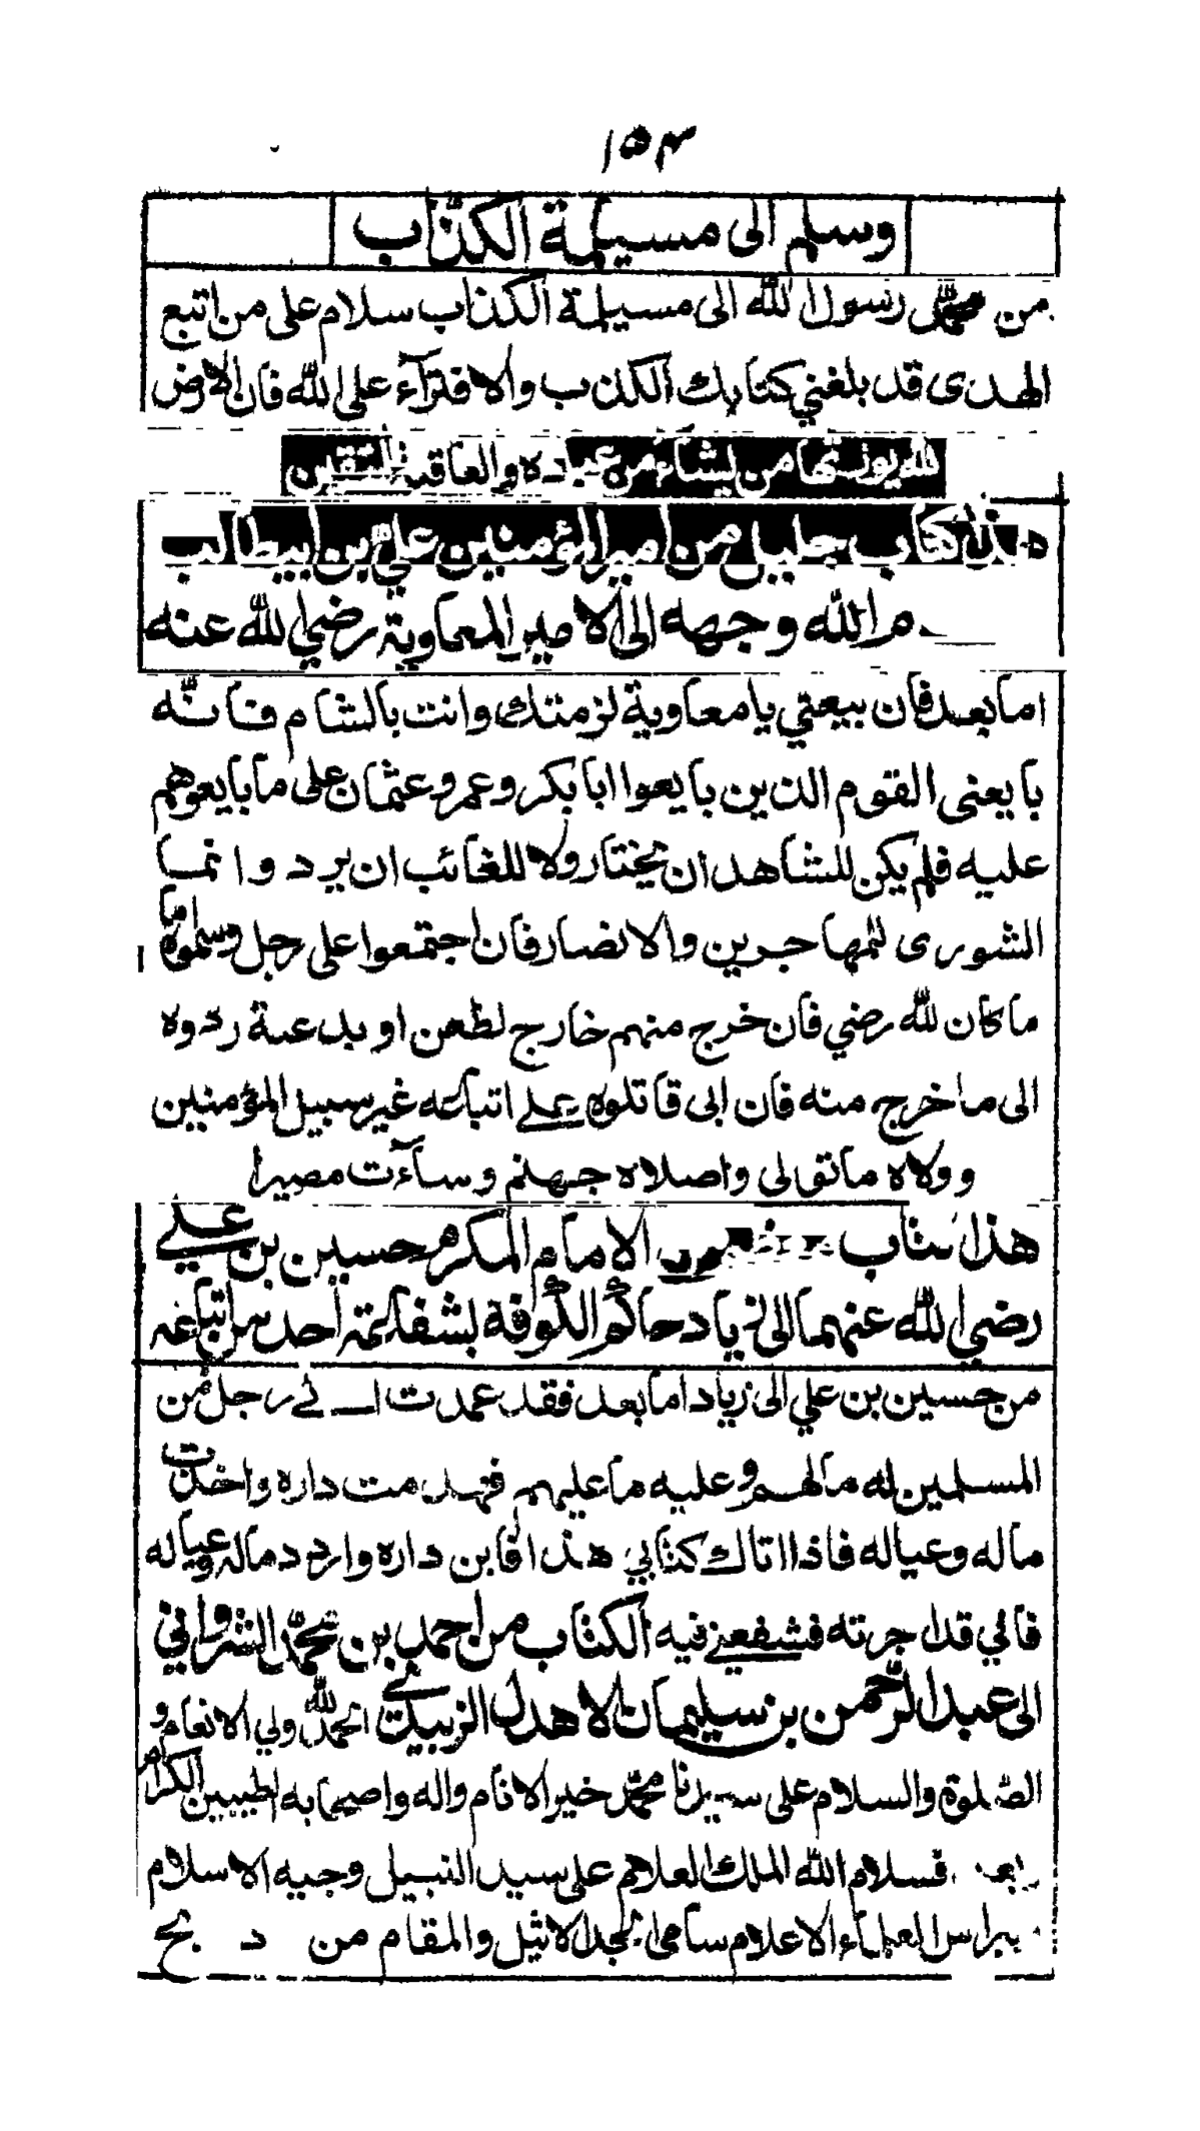 ١٥٣
وسلم الى مسيلمة الكذاب
من محمد رسول الله الى مسيلمة الكذاب سلام على من اتبع
الهدى قد بلغني كتابك الكذب والافترآء على الله فان الارض
لله يورثها من يشآء من عباده والعاقبة للمتقين
هذا كتاب جليل من امير المؤمنين علي بن ابيطالب
كرم الله وجهه الى الامير المعاوية رضي الله عنه
اما بعد فان بيعتي يا معاوية لزمتك وانت بالشام فانّه
بايعنى القوم الذين بايعوا ابا بكر وعمر وعثمان على ما بايعوهم
عليه فلم يكن للشاهد ان يختار ولا للغائب ان يرد وانما
الشورى للمهاجرين والانصار فان اجتمعوا على رجل وسموه اماما
ما كان لله رضي فان خرج منهم خارج لطعن او بدعة ردوه
الى ما خرج منه فان ابى قاتلوه على اتباعه غير سبيل المؤمنين
وولاه ما تولى واصلاه جهنم وسآءت مصيرا
هذا كتاب من الامام المكرم حسين بن علي
رضي الله عنهما الى زياد حاكم الكوفة بشفاعة احد من اتباعه
من حسين بن علي الى زياد اما بعد فقد عمدت الى رجل من
المسلمين له ما لهم وعليه ما عليهم فهدمت داره واخذت
ماله وعياله فاذا اتاك كتابي هذا فابن داره واردد ماله وعياله
فاني قد اجرته فشفعني فيه الكتاب من احمد بن محمّد الشرواني
الى عبد الرّحمن بن سليمان الاهدل الزبيدي الحمد لله ولي الانعام و
الصّلوة والسلام على سيدنا محمّد خير الانام واله واصحابه الطيبين الكرام
وبعد فسلام الله الملك العلام على سيد النبيل وجيه الاسلام
نبراس العلمآء الاعلام سامي المجد الاثيل والمقام من